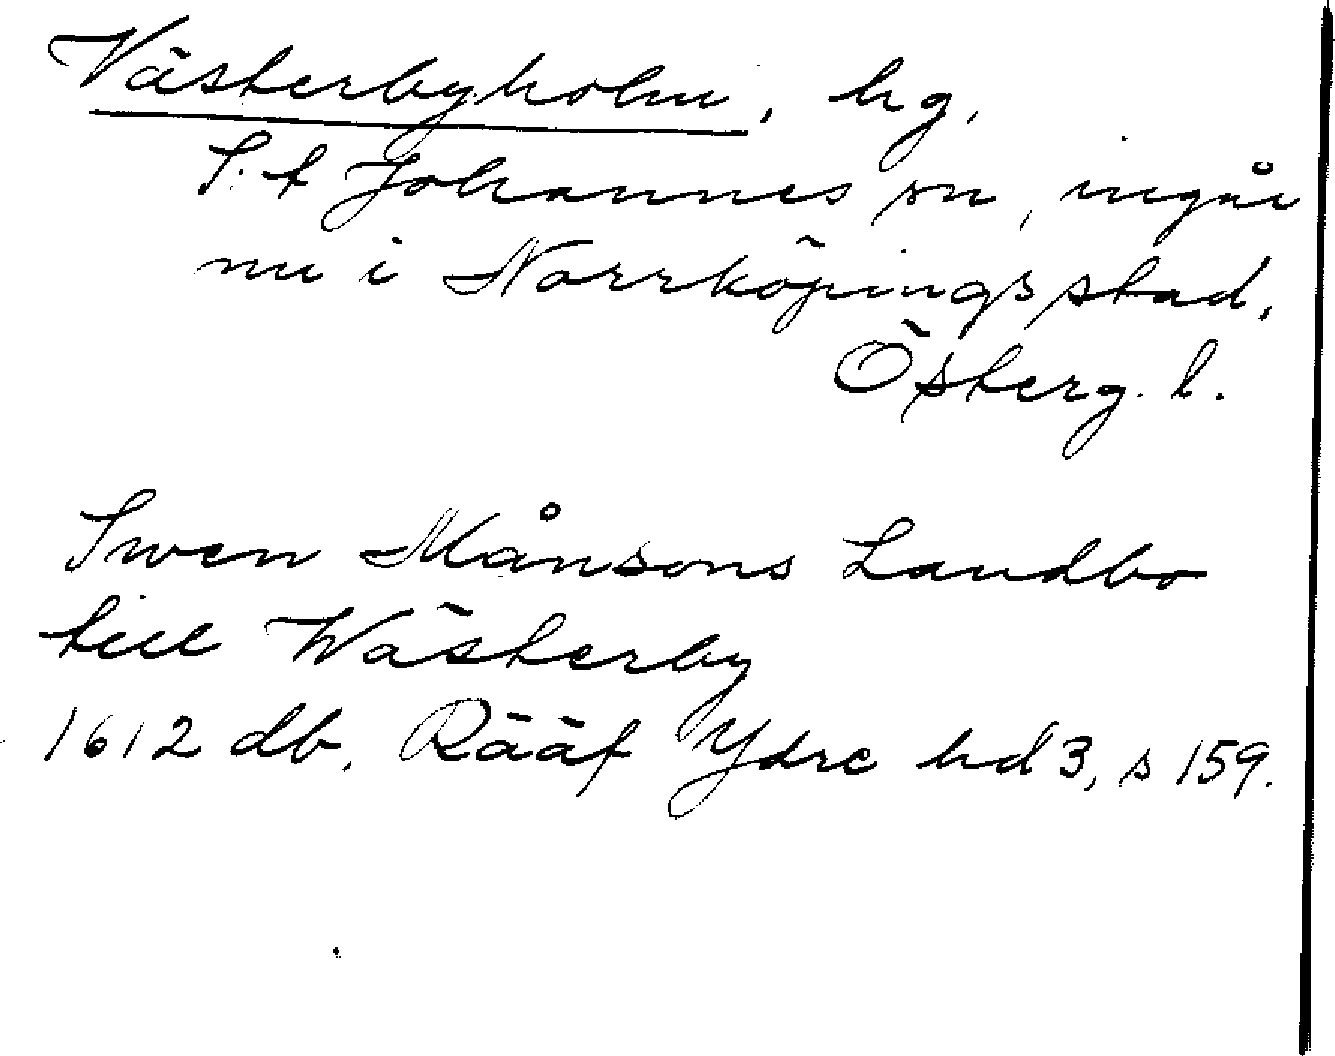 Västerbyholm, hg,
S:t Johannes sn, ingår
nu i Norrköpings stad,
Österg. l.
Swen Månsons Landbo
till Wästerby
1612 db, Rääf Ydre hd 3, s 159.